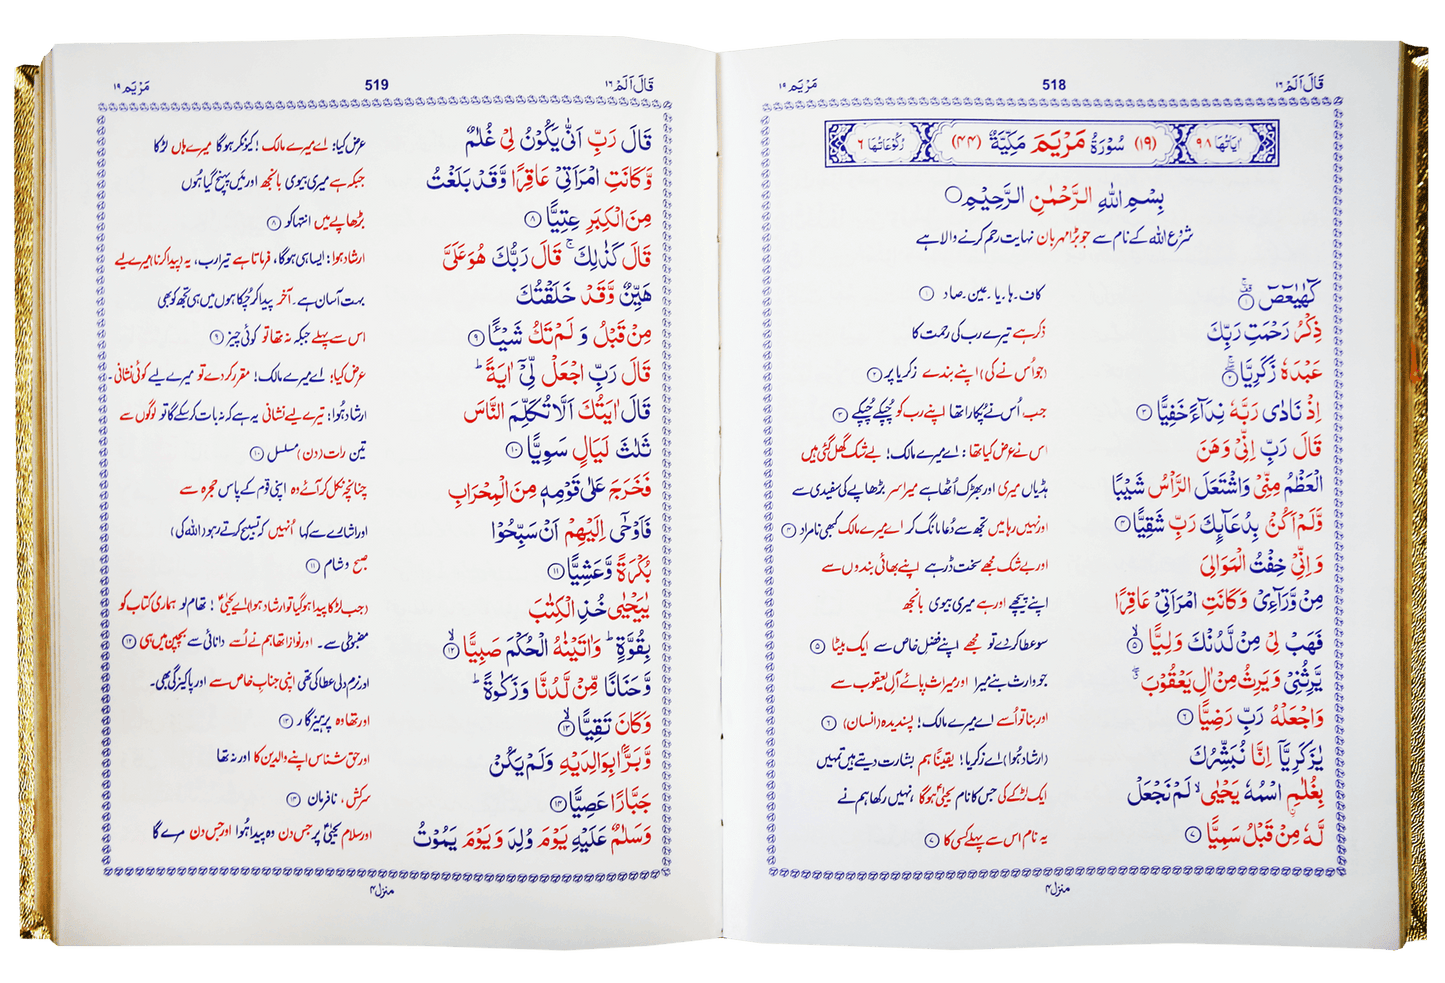 قَالَ اَلَمْ ١٦ 518 مَرْيَم ١٩
اٰيَاتُهَا ٩٨ (١٩) سُوْرَةُ مَرْيَمَ مَكِّيَّةٌ (٤٤) رُكُوْعَاتُهَا ٦
بِسْمِ اللّٰهِ الرَّحْمٰنِ الرَّحِيْمِ
شروع اللہ کے نام سے جو بڑا مہربان نہایت رحم کرنے والا ہے
كٓهٰيٰعٓصٓ ١ کاف۔ ہا۔ یا۔ عین۔ صاد ١
ذِكْرُ رَحْمَتِ رَبِّكَ ذکر ہے تیرے رب کی رحمت کا
عَبْدَهٗ زَكَرِيَّا ٢ (جو اُس نے کی) اپنے بندے زکریا پر ٢
اِذْ نَادٰى رَبَّهٗ نِدَآءً خَفِيًّا ٣ جب اُس نے پُکارا تھا اپنے رب کو چُپکے چُپکے ٣
قَالَ رَبِّ اِنِّىْ وَهَنَ اس نے عرض کیا تھا: اے میرے مالک! بے شک گھل گئی ہیں
الْعَظْمُ مِنِّىْ وَاشْتَعَلَ الرَّاْسُ شَيْبًا ہڈیاں میری اور بھڑک اُٹھا ہے میرا سر بڑھاپے کی سفیدی سے
وَّلَمْ اَكُنْ بِدُعَآئِكَ رَبِّ شَقِيًّا ٤ اور نہیں رہا میں تجھ سے دُعا مانگ کر اے میرے مالک کبھی نامراد ٤
وَاِنِّىْ خِفْتُ الْمَوَالِىَ اور بے شک مجھے سخت ڈر ہے اپنے بھائی بندوں سے
مِنْ وَّرَآءِىْ وَكَانَتِ امْرَاَتِىْ عَاقِرًا اپنے پیچھے اور ہے میری بیوی بانجھ
فَهَبْ لِىْ مِنْ لَّدُنْكَ وَلِيًّا ٥ سو عطا کر دے تو مجھے اپنے فضل خاص سے ایک بیٹا ٥
يَّرِثُنِىْ وَيَرِثُ مِنْ اٰلِ يَعْقُوْبَ جو وارث بنے میرا اور میراث پائے آلِ یعقوب سے
وَاجْعَلْهُ رَبِّ رَضِيًّا ٦ اور بنا تو اُسے اے میرے مالک! پسندیدہ (انسان) ٦
يٰزَكَرِيَّآ اِنَّا نُبَشِّرُكَ (ارشاد ہُوا) اے زکریا! یقینًا ہم بشارت دیتے ہیں تمہیں
بِغُلٰمِ ِۨاسْمُهٗ يَحْيٰى لَمْ نَجْعَلْ ایک لڑکے کی جس کا نام یحیٰیؑ ہوگا، نہیں رکھا ہم نے
لَّهٗ مِنْ قَبْلُ سَمِيًّا ٧ یہ نام اس سے پہلے کسی کا ٧
منزل ٤
قَالَ اَلَمْ ١٦ 519 مَرْيَم ١٩
قَالَ رَبِّ اَنّٰى يَكُوْنُ لِىْ غُلٰمٌ عرض کیا: اے میرے مالک! کیونکر ہوگا میرے ہاں لڑکا
وَّكَانَتِ امْرَاَتِىْ عَاقِرًا وَّقَدْ بَلَغْتُ جبکہ ہے میری بیوی بانجھ اور مَیں پہنچ گیا ہُوں
مِنَ الْكِبَرِ عِتِيًّا ٨ بڑھاپے میں انتہا کو ٨
قَالَ كَذٰلِكَ ۚ قَالَ رَبُّكَ هُوَ عَلَىَّ ارشاد ہوا: ایسا ہی ہوگا، فرماتا ہے تیرا رب، یہ (پیدا کرنا) میرے لیے
هَيِّنٌ وَّقَدْ خَلَقْتُكَ بہت آسان ہے۔ آخر پیدا کر چُکا ہوں میں ہی تجھ کو بھی
مِنْ قَبْلُ وَلَمْ تَكُ شَيْـًٔا ٩ اس سے پہلے جبکہ نہ تھا تو کوئی چیز ٩
قَالَ رَبِّ اجْعَلْ لِّىْٓ اٰيَةً ؕ عرض کیا: اے میرے مالک! مقرر کر دے تو میرے لیے کوئی نشانی۔
قَالَ اٰيَتُكَ اَلَّا تُكَلِّمَ النَّاسَ ارشاد ہُوا: تیرے لیے نشانی یہ ہے کہ نہ بات کر سکے گا تو لوگوں سے
ثَلٰثَ لَيَالٍ سَوِيًّا ١٠ تین رات (دن) مسلسل ١٠
فَخَرَجَ عَلٰى قَوْمِهٖ مِنَ الْمِحْرَابِ چنانچہ نکل کر آئے وہ اپنی قوم کے پاس حجرہ سے
فَاَوْحٰٓى اِلَيْهِمْ اَنْ سَبِّحُوْا اور اشارے سے کہا اُنہیں کہ تسبیح کرتے رہو (اللہ کی)
بُكْرَةً وَّعَشِيًّا ١١ صبح و شام ١١
يٰيَحْيٰى خُذِ الْكِتٰبَ (جب لڑکا پیدا ہو گیا تو ارشاد ہوا) اے یحیٰیؑ! تھام لو ہماری کتاب کو
بِقُوَّةٍ ؕ وَاٰتَيْنٰهُ الْحُكْمَ صَبِيًّا ١٢ مضبوطی سے۔ اور نوازا تھا ہم نے اُسے دانائی سے بچپن میں ہی ١٢
وَّحَنَانًا مِّنْ لَّدُنَّا وَزَكٰوةً ؕ اور نرم دلی عطا کی تھی اپنی جنابِ خاص سے اور پاکیزگی بھی۔
وَكَانَ تَقِيًّا ١٣ اور تھا وہ پرہیزگار ١٣
وَّبَرًّۢا بِوَالِدَيْهِ وَلَمْ يَكُنْ اور حق شناس اپنے والدین کا اور نہ تھا
جَبَّارًا عَصِيًّا ١٤ سرکش، نافرمان ١٤
وَسَلٰمٌ عَلَيْهِ يَوْمَ وُلِدَ وَيَوْمَ يَمُوْتُ اور سلام یحیٰیؑ پر جس دن وہ پیدا ہُوا اور جس دن مرے گا
منزل ٤